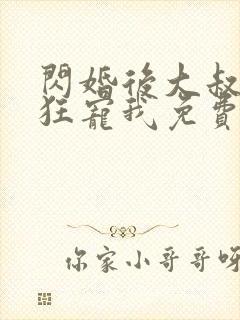 閃婚後大叔
狂寵我免費
你家小哥哥呀